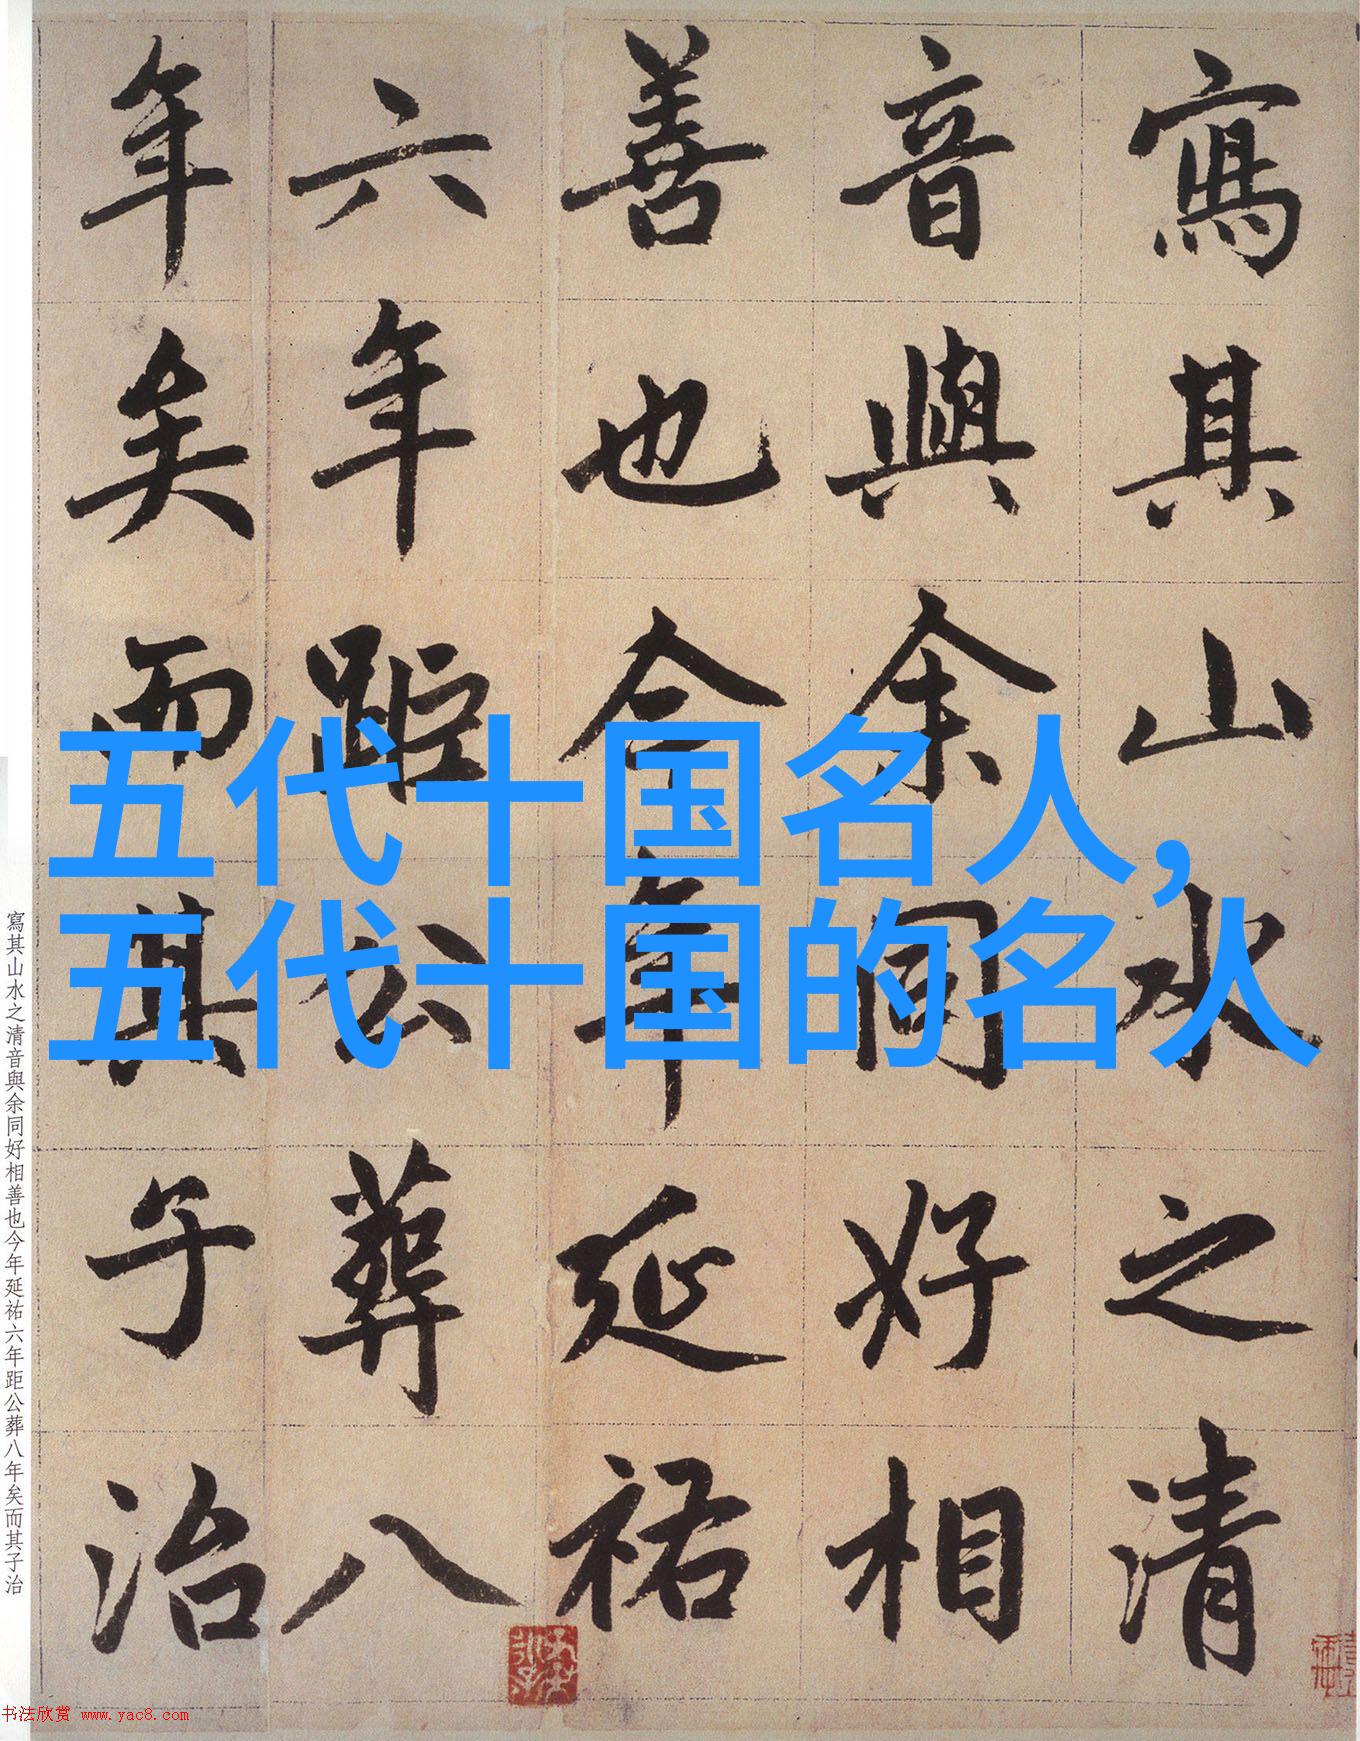 寫其山水之清
音與余同好相
善也今年延祐
六年距公葬八
年矣而其子治
五代十国名人,
五代十国的名人
寫其山水之清音與余同好相善也今年延祐六年距公葬八年矣而其子治
书法欣赏 www.yac8.com